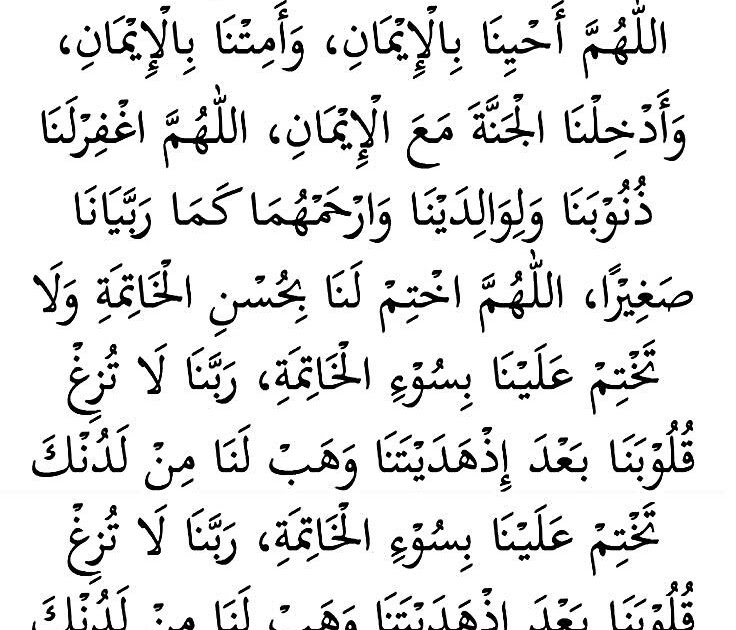 اللّٰهُمَّ أَحْيِنَا بِالْإِيْمَانِ، وَأَمِتْنَا بِالْإِيْمَانِ،
وَأَدْخِلْنَا الْجَنَّةَ مَعَ الْإِيْمَانِ، اللّٰهُمَّ اغْفِرْلَنَا
ذُنُوْبَنَا وَلِوَالِدَيْنَا وَارْحَمْهُمَا كَمَا رَبَّيَانَا
صَغِيْرًا، اللّٰهُمَّ اخْتِمْ لَنَا بِحُسْنِ الْخَاتِمَةِ وَلَا
تَخْتِمْ عَلَيْنَا بِسُوْءِ الْخَاتِمَةِ، رَبَّنَا لَا تُزِغْ
قُلُوْبَنَا بَعْدَ إِذْهَدَيْتَنَا وَهَبْ لَنَا مِنْ لَدُنْكَ
تَخْتِمْ عَلَيْنَا بِسُوْءِ الْخَاتِمَةِ، رَبَّنَا لَا تُزِغْ
قُلُوْبَنَا بَعْدَ إِذْهَدَيْتَنَا وَهَبْ لَنَا مِنْ لَدُنْكَ